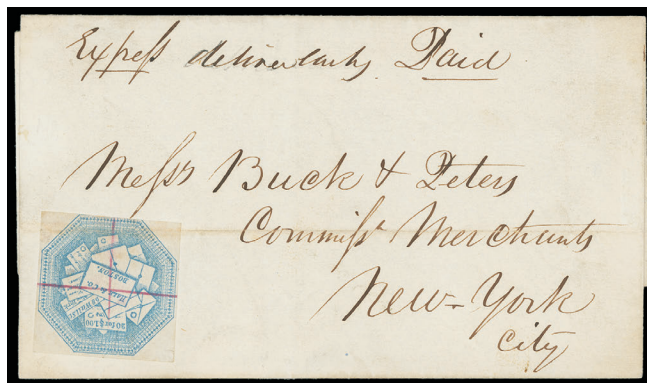 Express deliver early Paid
Messrs Buck & Peters
Commiss. Merchants
New-York
City
Hale & Co.
BOSTON.
20 for $1.00